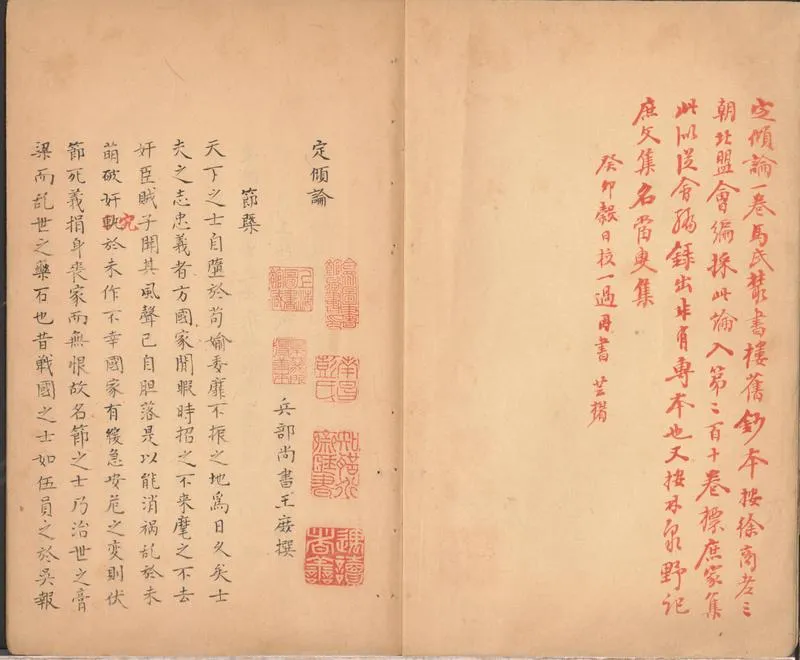 定傾論一卷馬氏叢書樓舊鈔本按徐商老三
朝北盟會編採此論入第二百十卷標庶家集
此似從會編錄出非有專本也又按林泉野記
庶文集名當叟集
癸卯穀日校一過因書 芸楣
定傾論
兵部尚書王庶撰
節槩
天下之士自墮於苟媮委靡不振之地爲日久矣士
夫之志忠義者方國家閒暇時招之不来麾之不去
奸臣賊子聞其風聲已自胆落是以能消禍乱於未
萌破奸軌於未作不幸國家有緩急安危之变則伏
宄
節死義捐身喪家而無恨故名節之士乃治世之膏
梁而乱世之藥石也昔戰國之士如伍員之於吳報
南昌
彭氏
知聖道
齋藏書
遇讀
者善